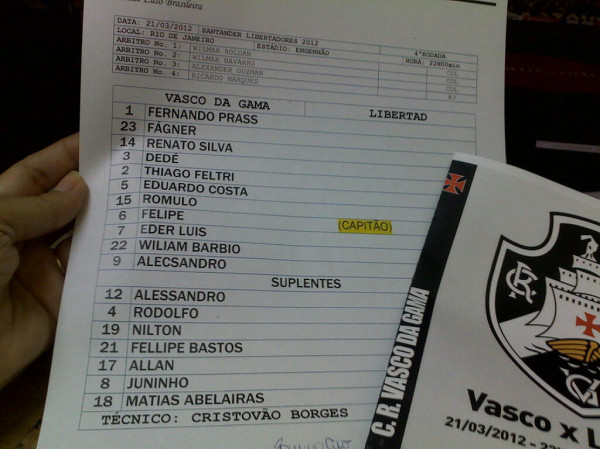 Caso Brasileira
DATA: 21/03/2012 SANTANDER LIBERTADORES 2012 4ªRODADA
LOCAL: RIO DE JANEIRO ESTÁDIO: ENGENHÃO HORA: 22H00min
ARBITRO No. 1: WILMAR ROLDAN COL
ARBITRO No. 2: WILMAR NAVARRO COL
ARBITRO No. 3: ALEXANDER GUZMAN COL
ARBITRO No. 4: RICARDO MARQUES
VASCO DA GAMA LIBERTAD
1 FERNANDO PRASS
23 FÁGNER
14 RENATO SILVA
3 DEDÉ
2 THIAGO FELTRI
5 EDUARDO COSTA
15 ROMULO
6 FELIPE (CAPITÃO)
7 EDER LUIS
22 WILIAM BARBIO
9 ALECSANDRO
SUPLENTES
12 ALESSANDRO
4 RODOLFO
19 NILTON
21 FELLIPE BASTOS
17 ALLAN
8 JUNINHO
18 MATIAS ABELAIRAS
TÉCNICO: CRISTOVÃO BORGES
C.R. VASCO DA GAMA
Vasco x L
21/03/2012 - 22